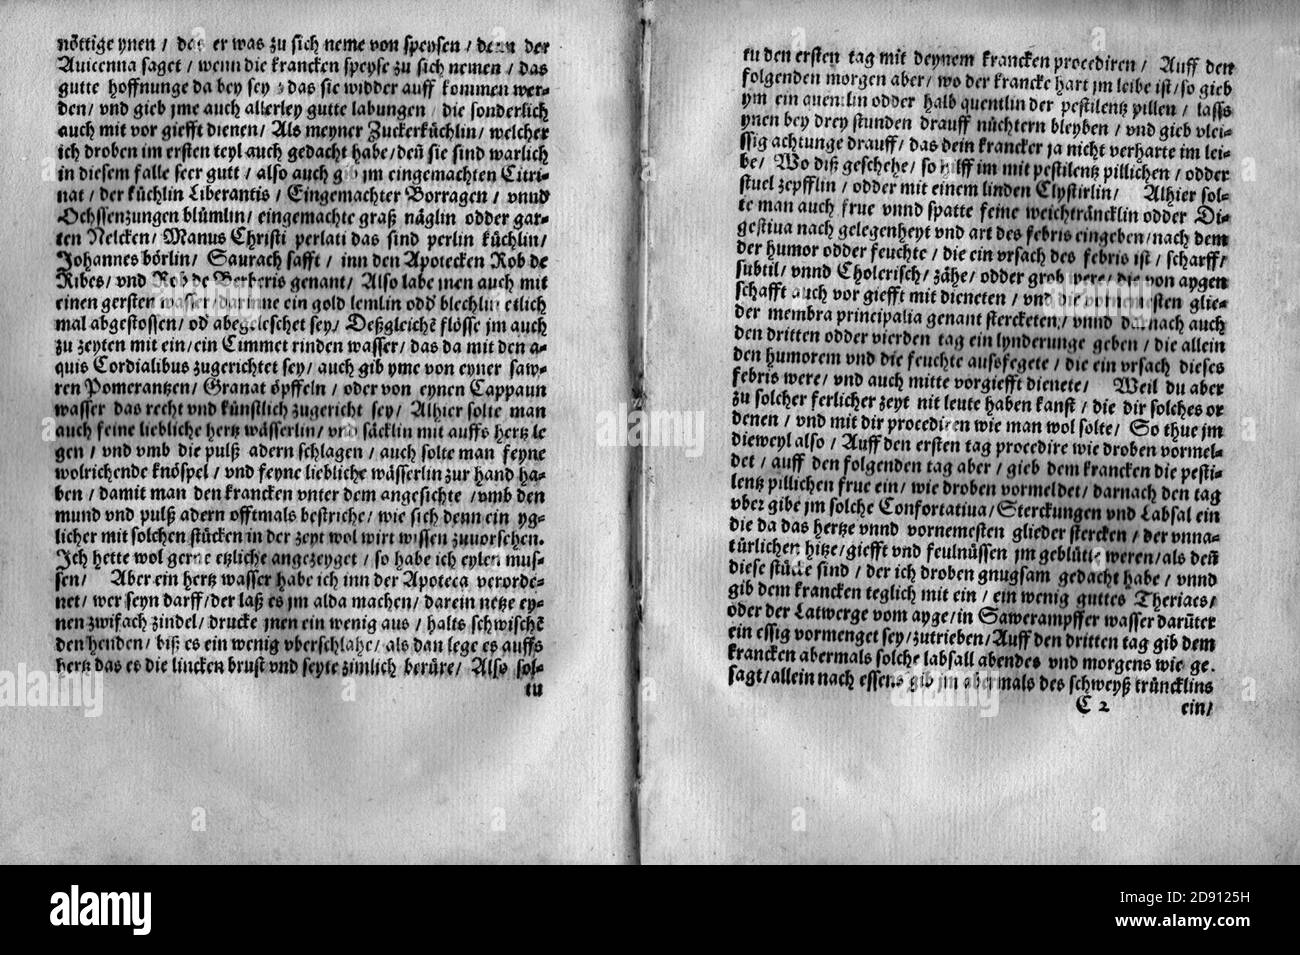 nöttige ynen / das er was zu sich neme von speysen / denn der
Auicenna saget / wenn die krancken speyse zu sich nemen / das
gutte hoffnunge da bey sey / das sie widder auff kommen wer-
den / vnd gieb jme auch allerley gutte labungen / die sonderlich
auch mit vor giefft dienen / Als meyner Zuckerküchlin / welcher
ich droben im ersten teyl auch gedacht habe / deñ sie sind warlich
in diesem falle seer gutt / also auch gib jm eingemachten Citri-
nat / der küchlin Liberantis / Eingemachter Borragen / vnnd
Ochssenzungen blümlin / eingemachte graß näglin odder gar-
ten Nelcken / Manus Christi perlati das sind perlin küchlin /
Johannes börlin / Saurach safft / inn den Apotecken Rob de
Ribes / vnd Rob de Berberis genant / Also labe jnen auch mit
einen gersten wasser / darinne ein gold lemlin odď blechlin etlich
mal abgestossen / oď abegeleschet sey / Deßgleichē flösse jm auch
zu zeyten mit ein / ein Cimmet rinden wasser / das da mit den a-
quis Cordialibus zugerichtet sey / auch gib yme von eyner saw-
ren Pomerantzen / Granat öpffeln / oder von eynen Cappaun
wasser das recht vnd künstlich zugericht sey / Alhier solte man
auch feine liebliche hertz wässerlin / vnd säcklin mit auffs hertz le
gen / vnd vmb die pulß adern schlagen / auch solte man feyne
wolrichende knöspel / vnd feyne liebliche wässerlin zur hand ha-
ben / damit man den krancken vnter dem angesichte / vmb den
mund vnd pulß adern offtmals bestriche / wie sich denn ein yg-
licher mit solchen stücken in der zeyt wol wirt wissen zuuorsehen.
Jch hette wol gerne etzliche angezeyget / so habe ich eylen mus-
sen / Aber ein hertz wasser habe ich inn der Apoteca verorde-
net / wer seyn darff / der laß es jm alda machen / darein netze ey-
nen zwifach zindel / drucke jnen ein wenig aus / halts schwischē
den henden / biß es ein wenig vberschlahe / als dan lege es auffs
hertz das es die lincken brust vnd seyte zimlich berüre / Also sol-
tu
tu den ersten tag mit deynem krancken procediren / Auff den
folgenden morgen aber / wo der krancke hart jm leibe ist / so gieb
ym ein quentlin odder halb quentlin der pestilentz pillen / lass
ynen bey drey stunden drauff nüchtern bleyben / vnd gieb vlei-
ssig achtunge drauff / das dein krancker ja nicht verharte im lei-
be / Wo diß geschehe / so hilff im mit pestilentz pillichen / odder
stuel zepfflin / odder mit einem linden Clystirlin / Alhier sol-
te man auch frue vnnd spatte feine weichträncklin odder Di-
gestiua nach gelegenheyt vnd art des febris eingeben / nach dem
der humor odder feuchte / die ein vrsach des febris ist / scharff /
subtil / vnnd Cholerisch / zähe / odder grob were / die von aygen
schafft auch vor giefft mit dieneten / vnd die vornemesten glie-
der membra principalia genant stercketen / vnnd darnach auch
den dritten odder vierden tag ein lynderunge geben / die allein
den humorem vnd die feuchte aussfegete / die ein vrsach dieses
febris were / vnd auch mitte vorgiefft dienete / Weil du aber
zu solcher ferlicher zeyt nit leute haben kanst / die dir solches or
denen / vnd mit dir procediren wie man wol solte / So thue jm
dieweyl also / Auff den ersten tag procedire wie droben vormel-
det / auff den folgenden tag aber / gieb dem krancken die pesti-
lentz pillichen frue ein / wie droben vormeldet / darnach den tag
vber gibe jm solche Confortatiua / Sterckungen vnd Labsal ein
die da das hertze vnnd vornemesten glieder stercken / der vnna-
türlichen hitze / giefft vnd feulnüssen jm geblütte weren / als deñ
diese stücke sind / der ich droben gnugsam gedacht habe / vnnd
gib dem krancken teglich mit ein / ein wenig guttes Theriacs /
oder der Latwerge vom ayge / in Sawerampffer wasser darüter
ein essig vormenget sey / zutrieben / Auff den dritten tag gib dem
krancken abermals solche labsall abendes vnd morgens wie ge.
sagt / allein nach essens gib jm abermals des schweyß trüncklins
C 2 ein /